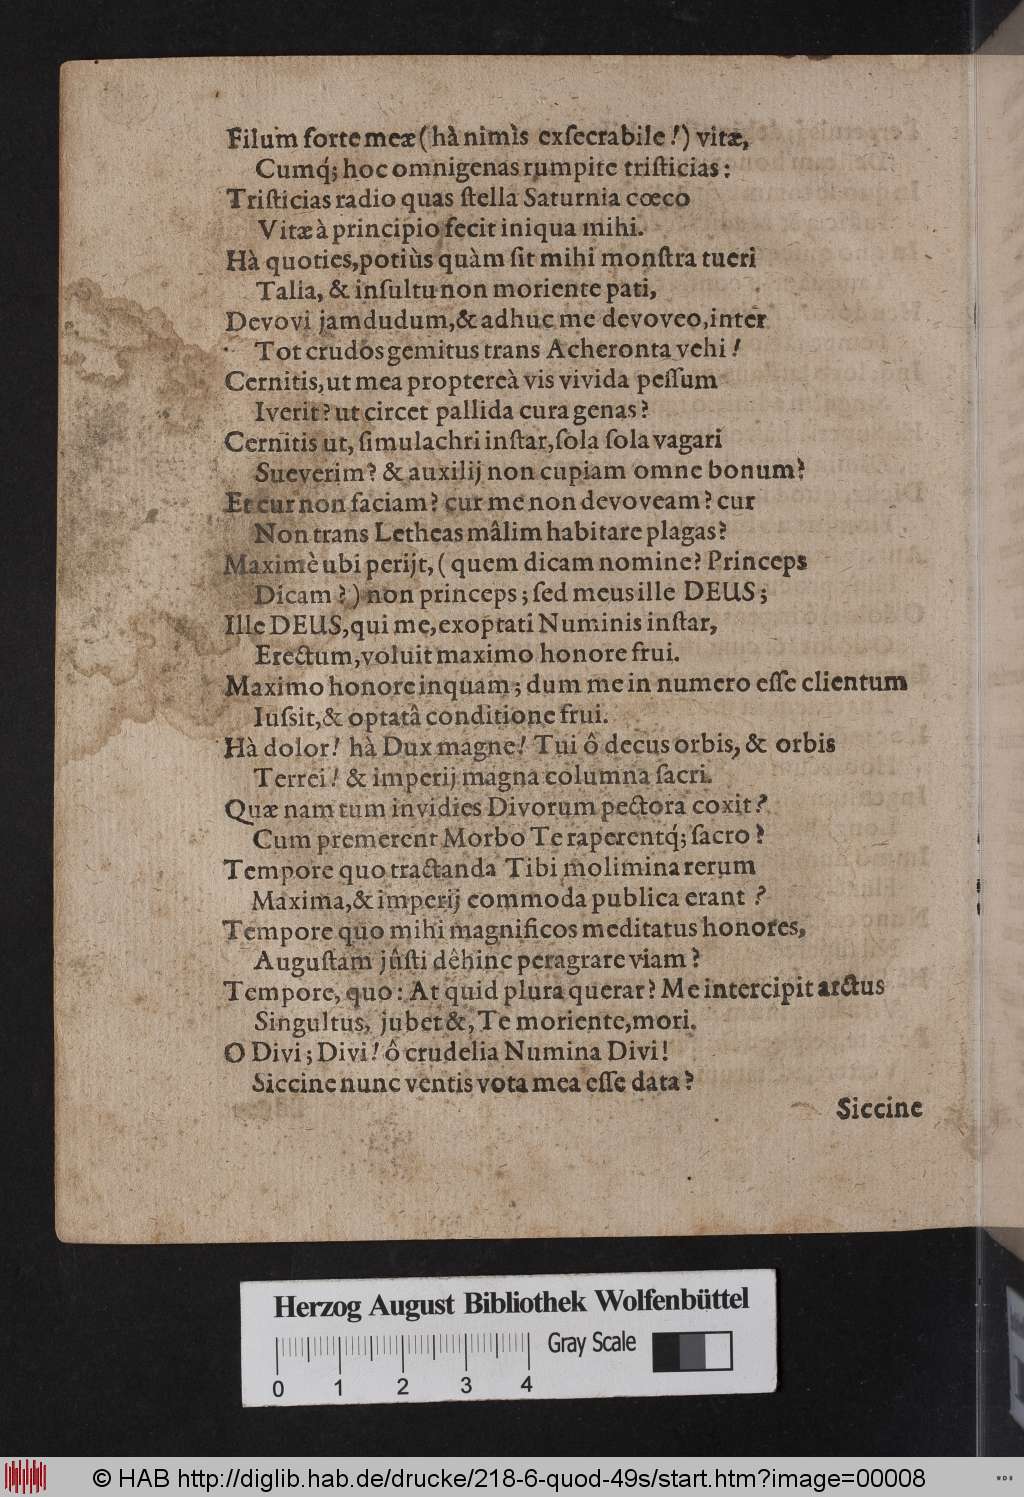 Filum forte meæ (hà nimìs exſecrabile!) vitæ,
Cumq́; hoc omnigenas rumpite triſticias:
Triſticias radio quas ſtella Saturnia cœco
Vitæ à principio fecit iniqua mihi.
Hà quoties, potiùs quàm ſit mihi monſtra tueri
Talia, & inſultu non moriente pati,
Devovi jamdudum, & adhuc me devoveo, inter
Tot crudos gemitus trans Acheronta vehi!
Cernitis, ut mea proptereà vis vivida peſſum
Iverit? ut circet pallida cura genas?
Cernitis ut, ſimulachri inſtar, ſola ſola vagari
Sueverim? & auxilij non cupiam omne bonum?
Et cur non faciam? cur me non devoveam? cur
Non trans Letheas mâlim habitare plagas?
Maximè ubi perijt, (quem dicam nomine? Princeps
Dicam?) non princeps; ſed meus ille DEUS;
Ille DEUS, qui me, exoptati Numinis inſtar,
Erectum, voluit maximo honore frui.
Maximo honore inquam; dum me in numero eſſe clientum
Iuſsit, & optatâ conditione frui.
Hà dolor! hà Dux magne! Tui ô decus orbis, & orbis
Terrei! & imperij magna columna ſacri.
Quæ nam tum invidies Divorum pectora coxit?
Cum premerent Morbo Te raperentq́; ſacro?
Tempore quo tractanda Tibi molimina rerum
Maxima, & imperij commoda publica erant?
Tempore quo mihi magnificos meditatus honores,
Auguſtam jûſti dêhinc peragrare viam?
Tempore, quo: At quid plura querar? Me intercipit arctus
Singultus, jubet &, Te moriente, mori.
O Divi; Divi! ô crudelia Numina Divi!
Siccine nunc ventis vota mea eſſe data?
Siccine
Herzog August Bibliothek Wolfenbüttel
Gray Scale
0 1 2 3 4
© HAB http://diglib.hab.de/drucke/218-6-quod-49s/start.htm?image=00008